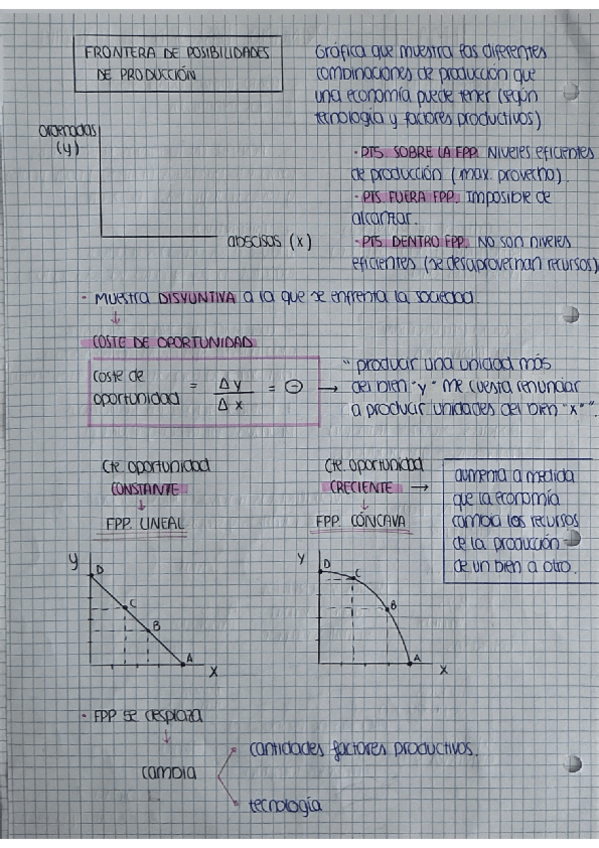 FRONTERA DE POSIBILIDADES
DE PRODUCCIÓN
Gráfica que muestra las diferentes
combinaciones de producción que
una economía puede tener (según
tecnología y factores productivos)
ordenadas
(y)
abscisas (x)
· PTS. SOBRE LA FPP. Niveles eficientes
de producción (max. provecho).
· PTS. FUERA FPP. Imposible de
alcanzar.
· PTS. DENTRO FPP. No son niveles
eficientes (se desaprovechan recursos)
· Muestra DISYUNTIVA a la que se enfrenta la sociedad.
↓
COSTE DE OPORTUNIDAD
coste de
oportunidad = Δy / Δx = ⊖ →
"producir una unidad más
del bien "y" me cuesta renunciar
a producir unidades del bien "x"".
Cte. oportunidad
CONSTANTE
↓
FPP. LINEAL
Cte. oportunidad
CRECIENTE →
↓
FPP. CÓNCAVA
aumenta a medida
que la economía
cambia los recursos
de la producción
de un bien a otro.
y
D
C
B
A
x
y
D
C
B
A
x
· FPP se desplaza
↓
cambia
cantidades factores productivos.
tecnología